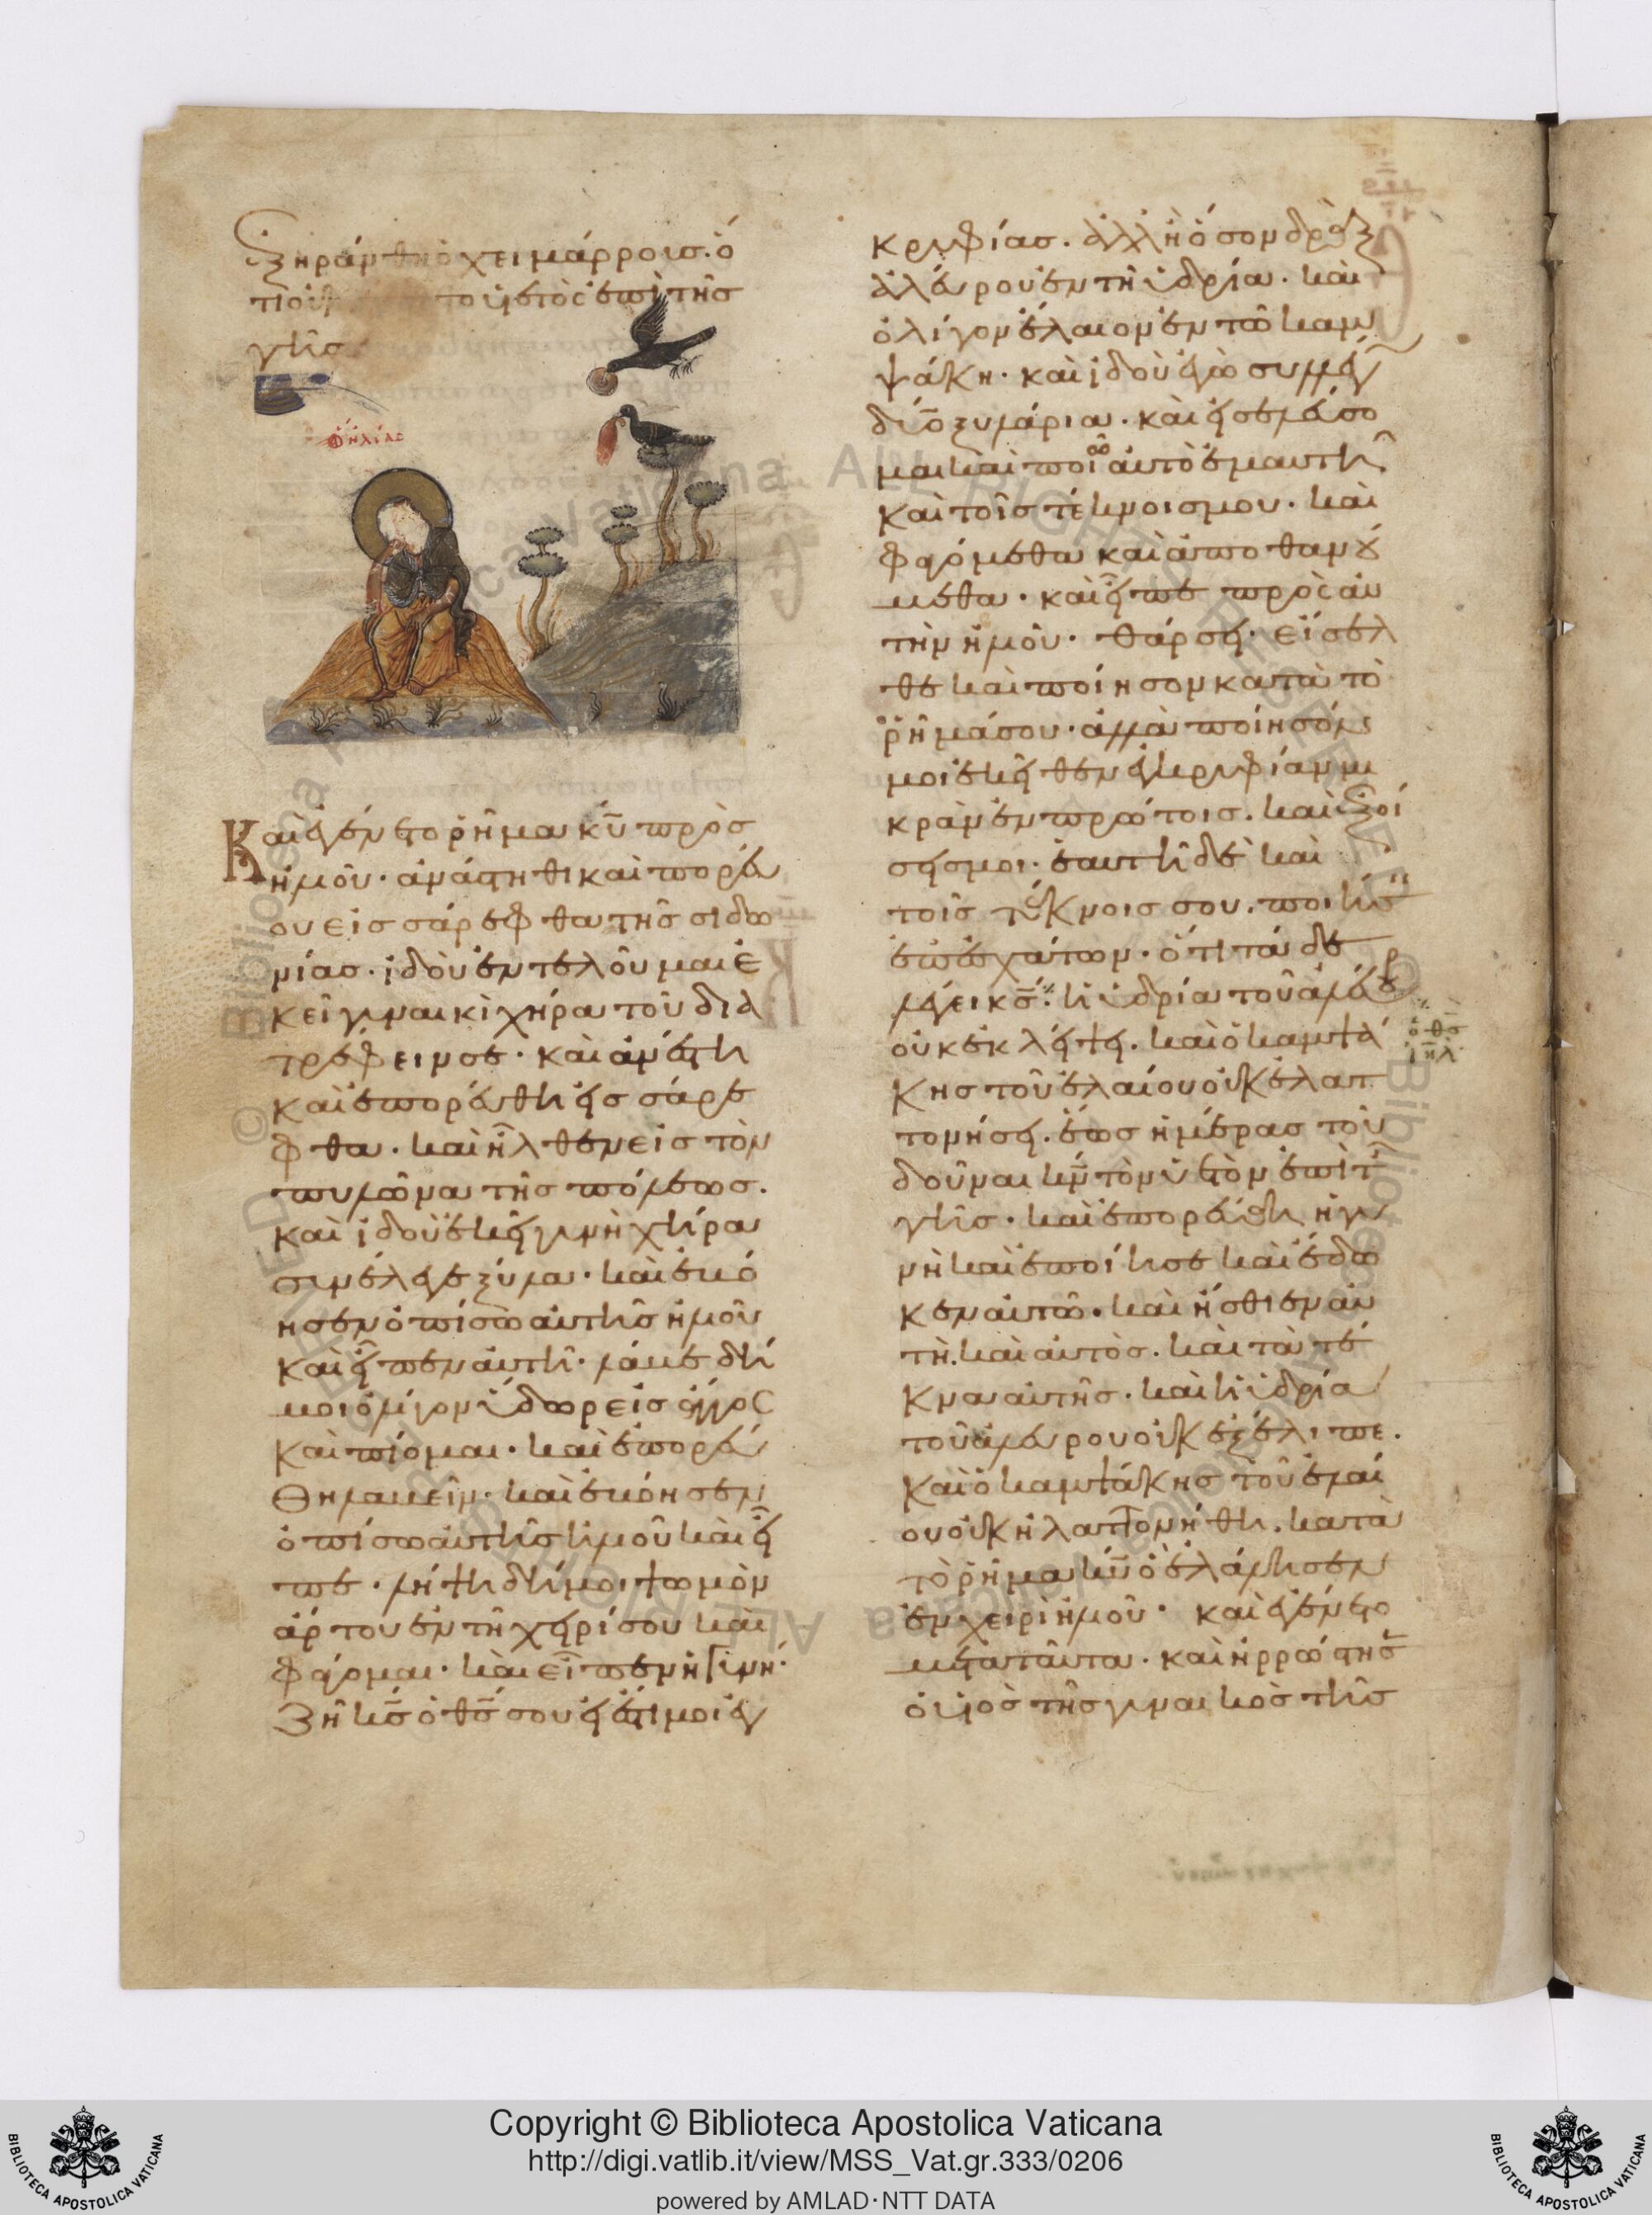 ἐξηράνθη ὁ χειμάρρους. ὅ
το ὑετὸς ἐπὶ τῆς
γῆς
ὁ ἠλίας
Καὶ ἐγένετο ῥῆμα κ̅υ̅ πρὸς
ἠλιοῦ· ἀνάστηθι καὶ πορεύ
ου εἰς σάρεφθα τῆς σιδω
νίας· ἰδοὺ ἐντελοῦμαι ἐ
κεῖ γυναικὶ χήρα τοῦ δια
τρέφειν σε· καὶ ἀνέστη
καὶ ἐπορεύθη εἰς σάρε
φθα· καὶ ἦλθεν εἰς τὸν
πυλῶνα τῆς πόλεως.
καὶ ἰδοὺ ἐκεῖ γυνὴ χήρα
συνέλεγε ξύλα· καὶ ἐβό
ησεν ὀπίσω αὐτῆς ἠλιοῦ
καὶ εἶπεν αὐτῆ· λάβε δή
μοι ὀλίγον ὕδωρ εἰς ἄγγος
καὶ πίομαι· καὶ ἐπορεύ
θη λαβεῖν· καὶ ἐβόησεν
ὀπίσω αὐτῆς ἠλιοῦ καὶ εἶ
πε· λήψη δή μοι ψωμὸν
ἄρτου ἐν τῆ χειρί σου καὶ
φάγομαι· καὶ εἶπεν ἡ γυνή·
Ζῆ κ̅ς̅ ὁ θ̅ς̅ σου εἰ ἔστι μοι ἐγ
κρυφίας. ἀλλ' ἢ ὅσον δρὰξ
ἀλεύρου ἐν τῆ ὑδρία· καὶ
ὀλίγον ἔλαιον ἐν τῶ καμ
ψάκη· καὶ ἰδοὺ ἐγὼ συλλέγω
δύο ξυλάρια· καὶ εἰσελεύσο
μαι καὶ ποιῶ αὐτὸ ἐμαυτῆ
καὶ τοῖς τέκνοις μου· καὶ
φαγόμεθα καὶ ἀποθανού
μεθα· καὶ εἶπε πρὸς αὐ
τὴν ἠλιοῦ· θάρσει· εἴσελ
θε καὶ ποίησον κατὰ τὸ
ῥῆμά σου· ἀλλὰ ποίησόν
μοι ἐκεῖθεν ἐγκρυφίαν μι
κρὰν ἐν πρώτοις. καὶ ἐξοί
σεις μοι· ἑαυτῆ δὲ καὶ
τοῖς τέκνοις σου. ποιήσεις
ἐπ' ἐσχάτων· ὅτι τάδε
λέγει κ̅ς̅· ἡ ὑδρία τοῦ ἀλεύρ
ὁ θ̅ς̅
ι̅η̅λ̅·
οὐκ ἐκλείψει. καὶ ὁ καμψά
κης τοῦ ἐλαίου οὐκ ἐλατ
τονήσει. ἕως ἡμέρας τοῦ
δοῦναι κ̅ν̅ τὸν ὑετὸν ἐπὶ τῆς
γῆς· καὶ ἐπορεύθη ἡ γυ
νὴ καὶ ἐποίησε καὶ ἔδω
κεν αὐτῶ· καὶ ἤσθιεν αὐ
τὴ. καὶ αὐτὸς. καὶ τὰ τέ
κνα αὐτῆς· καὶ ἡ ὑδρία
τοῦ ἀλεύρου οὐκ ἐξέλιπε.
καὶ ὁ καμψάκης τοῦ ἐλαί
ου οὐκ ἠλαττονήθη. κατὰ
τὸ ῥῆμα κ̅υ̅ ὃ ἐλάλησεν
ἐν χειρὶ ἠλιοῦ· καὶ ἐγένετο
μετὰ ταῦτα. καὶ ἠρρώστησεν
ὁ υἱὸς τῆς γυναικὸς τῆς
Copyright © Biblioteca Apostolica Vaticana
http://digi.vatlib.it/view/MSS_Vat.gr.333/0206
powered by AMLAD·NTT DATA
BIBLIOTECA APOSTOLICA VATICANA
BIBLIOTECA APOSTOLICA VATICANA